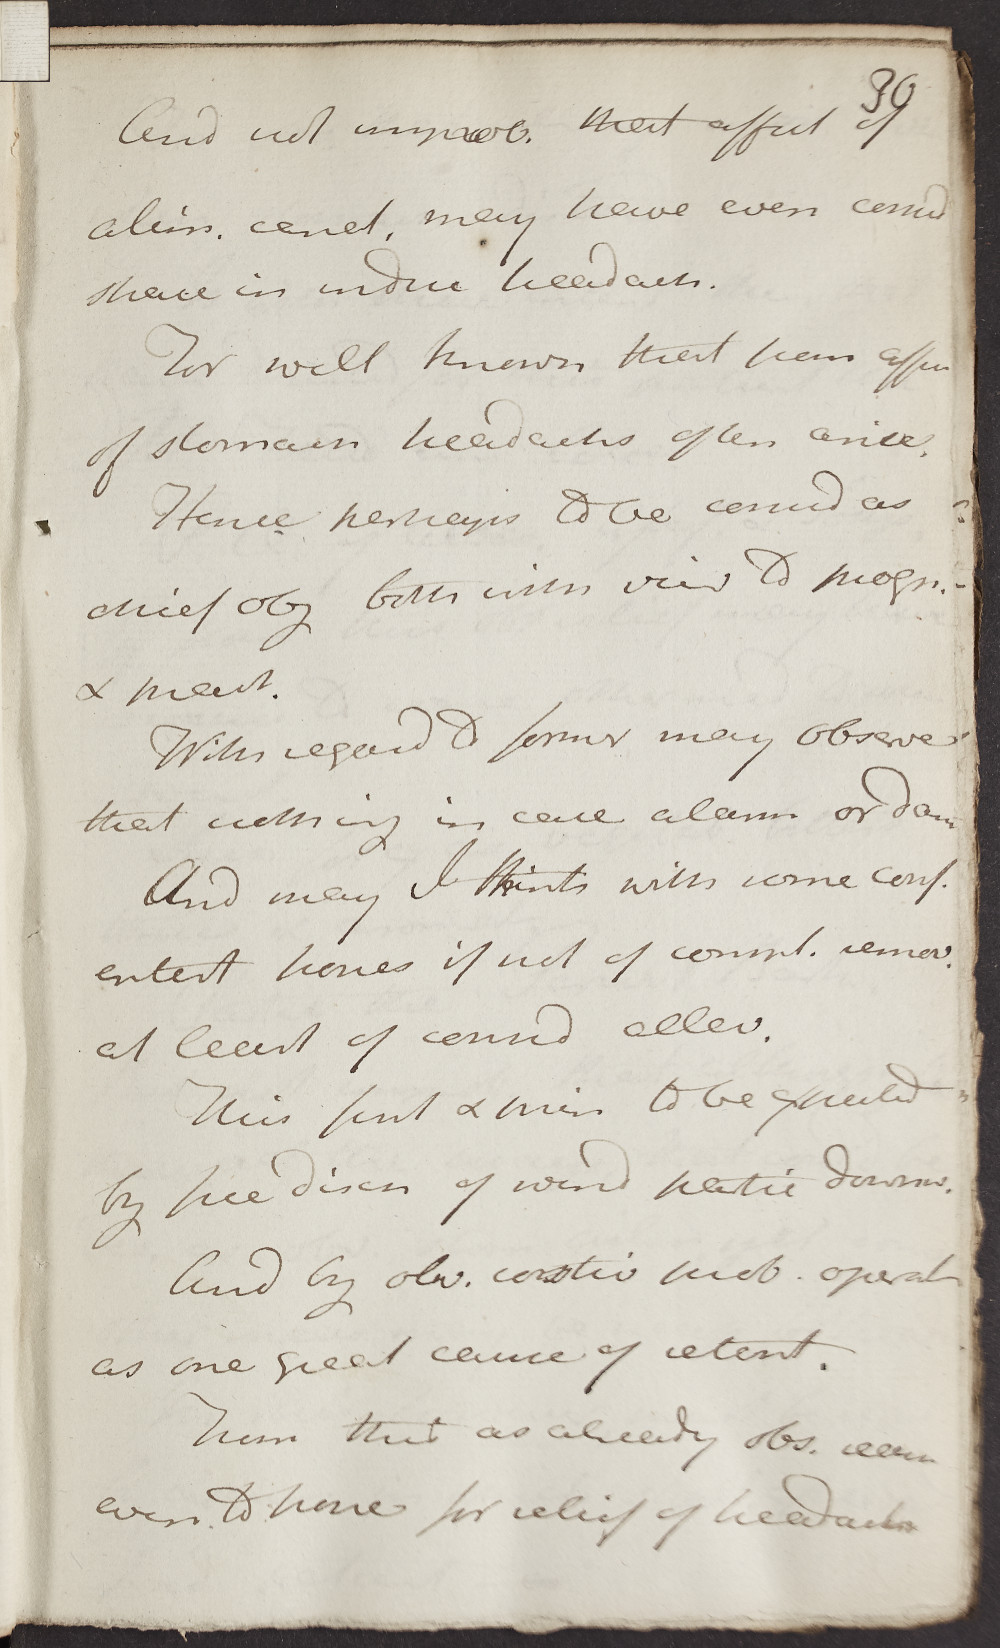 30
And not improb. that affect of
alim. canal, may have even consid
share in induc headach.
For well known that from affec
of stomach headachs often arise.
Hence perhaps to be consid as
chief obj both with view to progn.
& treat.
With regard to former may observe
that nothing in case alarm or dan
And may I think with some conf.
entert hopes if not of compl. remov.
at least of consid allev.
This first & princ to be expected
by free disch of wind partic downw.
And by obv. costiv prob. operat
as one great cause of retent.
From that as already obs. 
even to hope for relief of headachs